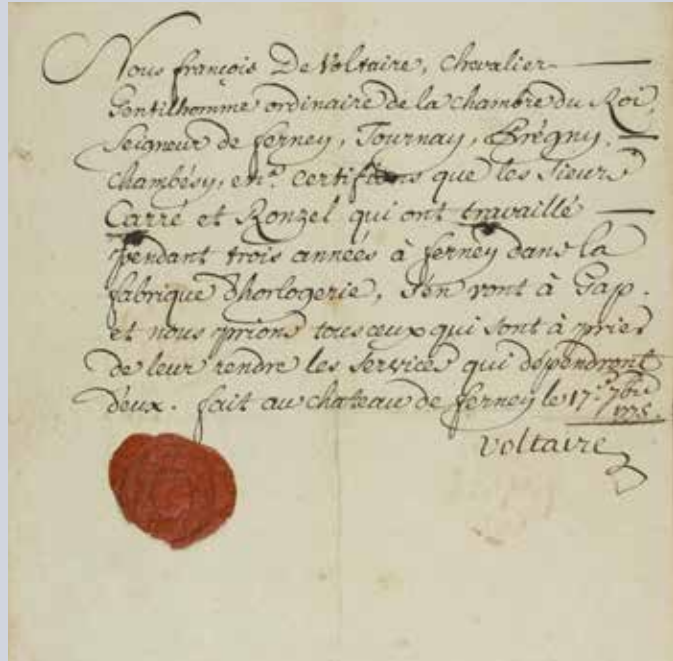 Nous françois De Voltaire, chevalier
Gentilhomme ordinaire de la chambre du Roi,
Seigneur de ferney, Tournay, Prégny,
chambésy, en.ᵃ certifions que les Sieurs
Carré et Ronzel qui ont travaillé
pendant trois années à ferney dans la
fabrique d'horlogerie, s'en vont à Gap.
et nous prions tous ceux qui sont à prier
de leur rendre les services qui dépendront
d'eux. fait au chateau de ferney le 17.ᵉ 7bre
1775.
Voltaire